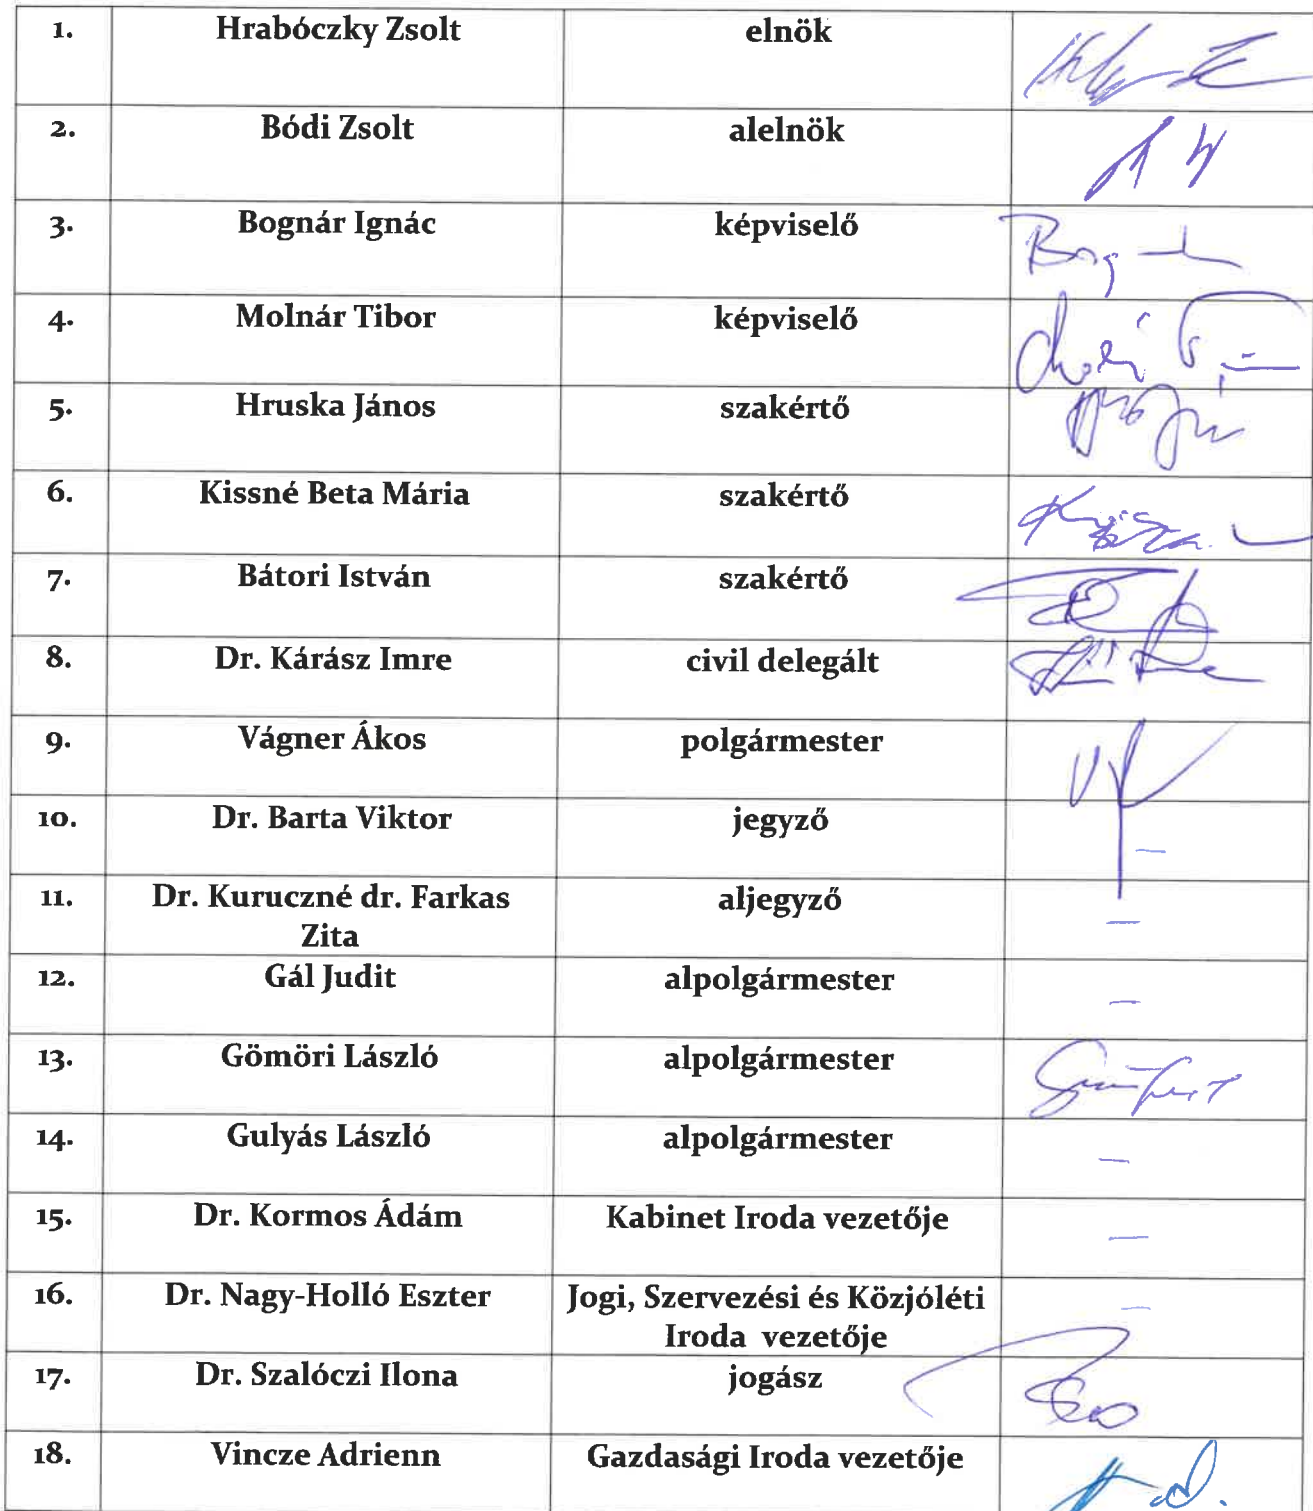 1. Hrabóczky Zsolt elnök
2. Bódi Zsolt alelnök
3. Bognár Ignác képviselő
4. Molnár Tibor képviselő
5. Hruska János szakértő
6. Kissné Beta Mária szakértő
7. Bátori István szakértő
8. Dr. Kárász Imre civil delegált
9. Vágner Ákos polgármester
10. Dr. Barta Viktor jegyző –
11. Dr. Kuruczné dr. Farkas aljegyző –
Zita
12. Gál Judit alpolgármester –
13. Gömöri László alpolgármester
14. Gulyás László alpolgármester –
15. Dr. Kormos Ádám Kabinet Iroda vezetője –
16. Dr. Nagy-Holló Eszter Jogi, Szervezési és Közjóléti –
Iroda vezetője
17. Dr. Szalóczi Ilona jogász
18. Vincze Adrienn Gazdasági Iroda vezetője